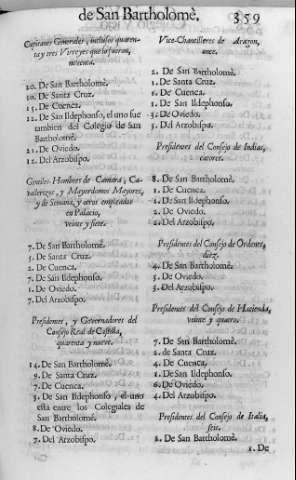 de San Bartholomè. 359
Capitanes Generales, inclusos quaren-
ta y tres Virreyes que lo fueron,
noventa.
20. De San Bartholomè.
10. De Santa Cruz.
15. De Cuenca.
12. De San Ildephonso, el uno fue
tambien del Colegio de San
Bartholomè.
21. De Oviedo.
12. Del Arzobispo.
Gentiles-Hombres de Camara, Ca-
valerizos, y Mayordomos Mayores,
y de Semana, y otros empleados
en Palacio,
veinte y siete.
7. De San Bartholomè.
3. De Santa Cruz.
2. De Cuenca.
7. De San Ildephonso.
1. De Oviedo.
7. Del Arzobispo.
Presidentes, y Governadores del
Consejo Real de Castilla,
quarenta y nueve.
14. De San Bartholomè.
9. De Santa Cruz.
7. De Cuenca.
5. De San Ildephonso, el uno
está entre los Colegiales de
San Bartholomè.
8. De Oviedo.
7. Del Arzobispo.
Vice-Chancilleres de Aragon,
once.
2. De San Bartholomè.
1. De Santa Cruz.
De Cuenca.
1. De San Ildephonso.
De Oviedo.
Del Arzobispo.
Presidentes del Consejo de Indias,
catorce.
8. De San Bartholomè.
1. De Cuenca.
1. De San Ildephonso.
2. De Oviedo.
2. Del Arzobispo.
Presidentes del Consejo de Ordenes,
diez.
4. De San Bartholomè.
De Oviedo.
Del Arzobispo.
Presidentes del Consejo de Hacienda,
veinte y quatro.
7. De San Bartholomè.
2. de Santa Cruz.
4. De Cuenca.
1. De San Ildephonso.
6. De Oviedo.
4. Del Arzobispo.
Presidentes del Consejo de Italia,
siete.
2. De San Bartholomè.
1. De